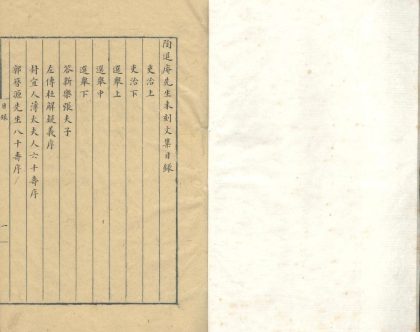 陶退庵先生未刻文集目錄
吏治上
吏治下
選舉上
選舉中
選舉下
荅新樂張夫子
左傳杜解疑義序
封宜人薄太夫人六十壽序
郭聲源先生八十壽序
目錄
一